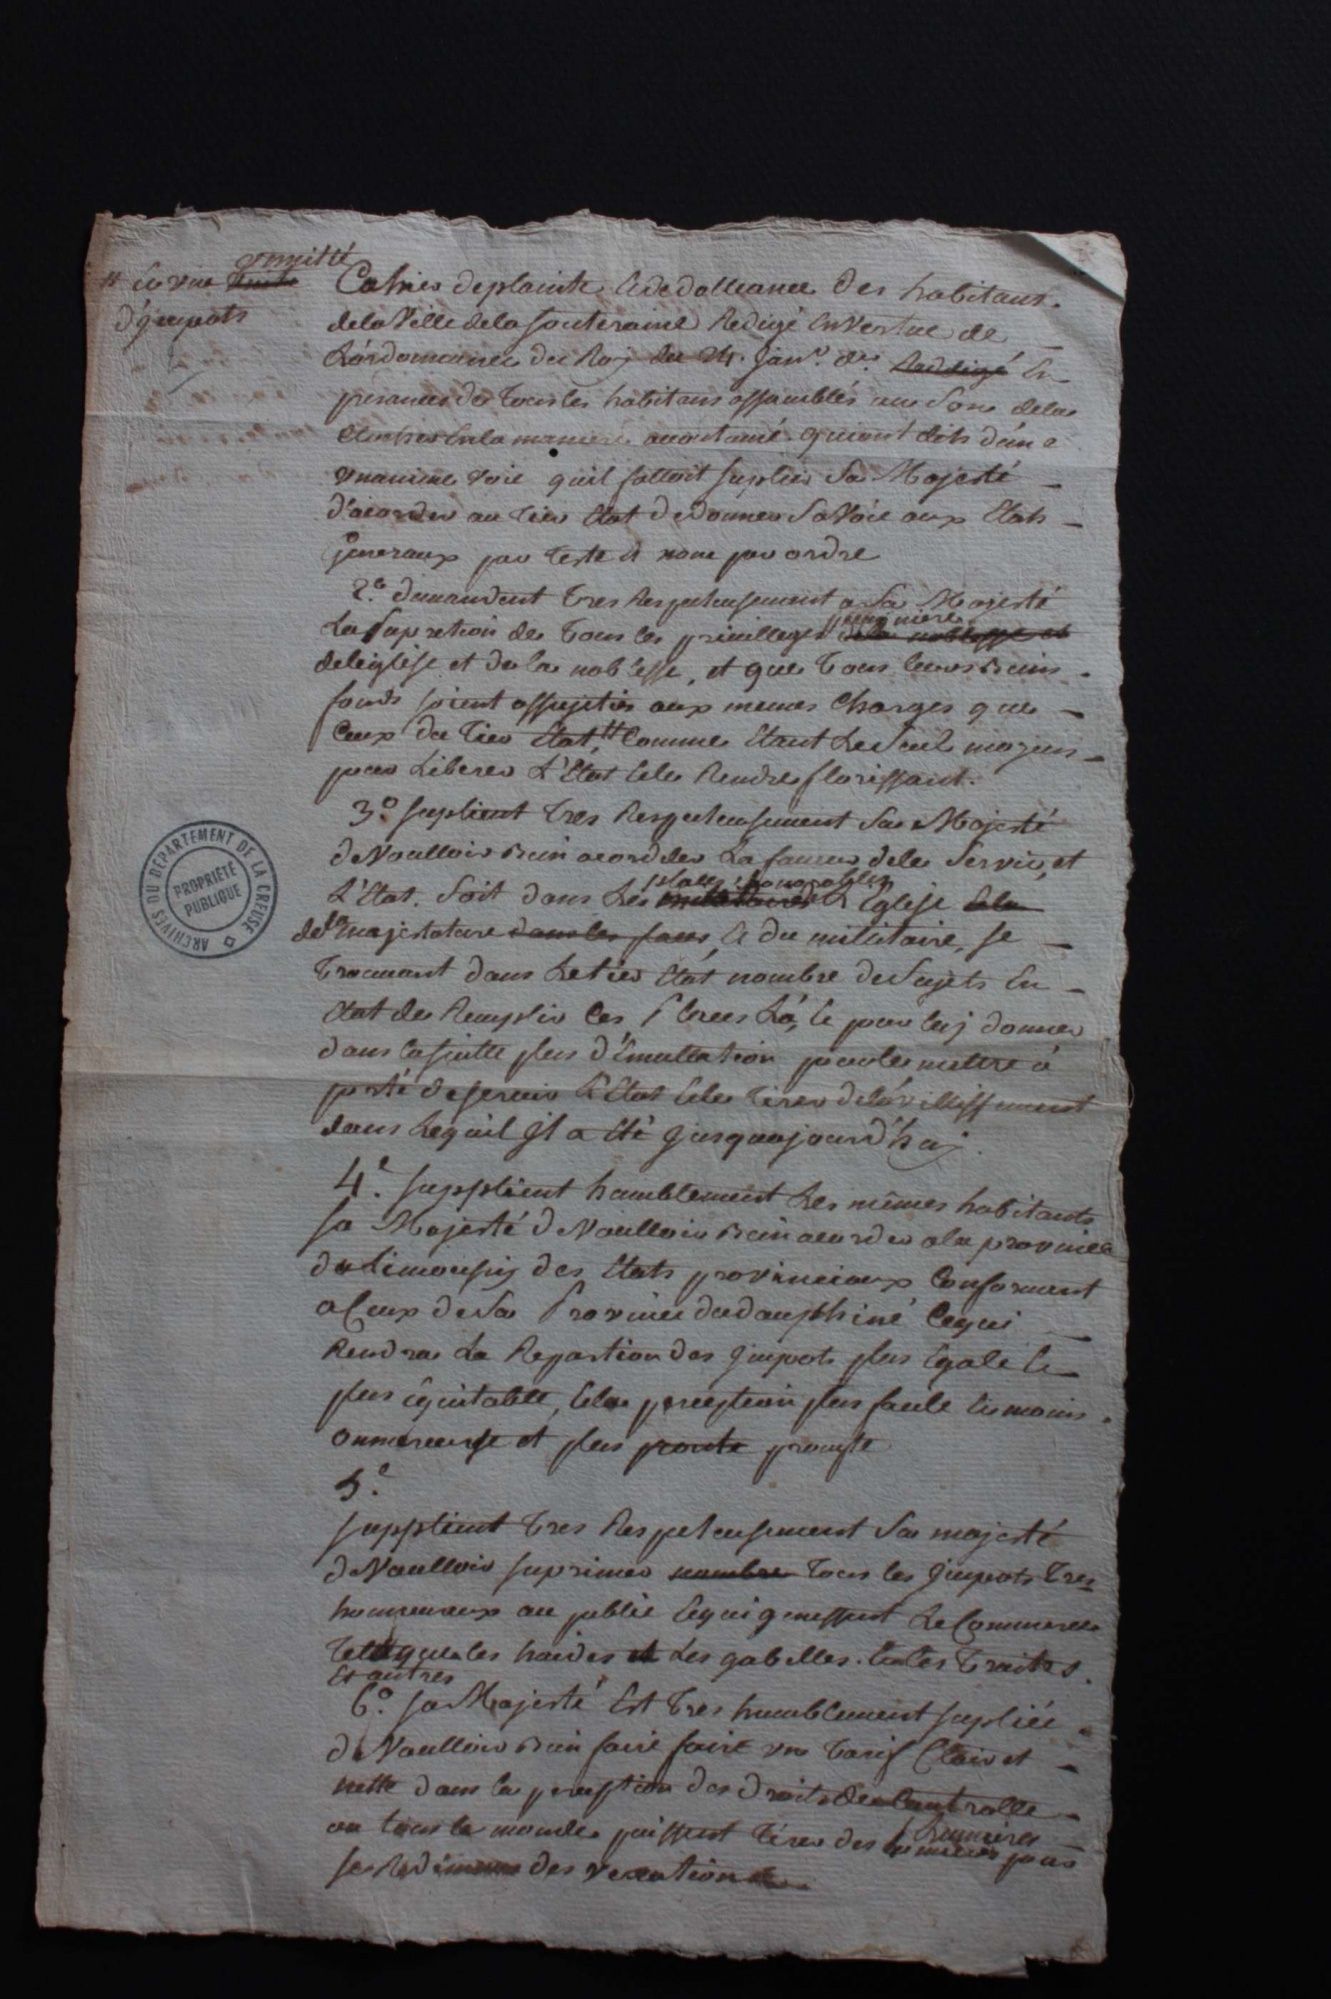 # en une unnitté
d'Jmpots
Cahier de plainte & de dolleance des habitans
de la Ville de la Souteraine Redigé en Vertue de
L'ordonnance du Roj du 24. Janv.r d.r Reddigé En
presances de tous les habitans assemblés au Son de la
cloches En la maniere acoutumé qui ont dits d'une
vnanime voie quil falloit suplier Sa Majesté
d'acorder au tiers Etat de donner Sa Voie aux Etats
generaux par teste & none par ordre
2.e demandent tres Respectueusement a Sa Majesté
La Supretion de tous les privilleges pecuniere de la noblesse et
de leglise et de la noblesse, et que tous leurs Biens
fonds soient assujetis aux memes Charges que
Ceux du tiers Etat, # Comme Etant Le Seul moyens
pour Liberer L'Etat & le Rendre florissant.
3.o suplient tres Respectueusement Sa Majesté
de Voulloir Bien acorder La faveur de le Servir, et
L'Etat. Soit dans Les places honorables militaires L'Eglise de la
de la majestature dans les & du militaire, se
trouvant dans Le tier Etat nombre de Sujets En
Etat de Remplir Ces Places Là, & pour luj donner
dans la suitte plus d'Emullation pour le mettre à
porté de servir L'Etat & le tirer de l'avillissement
dans Lequil Jl a Eté Jusquaujourd'huj.
4.e supplient humblement Les mêmes habitants
sa Majesté de Voulloir Bien acorder a la province
du Limousin des Etats provinciaux Conformant
a Ceux de Sa Province du dauphiné Cequi
Rendra La Repartion des Jmpots plus Egale &
plus Equitable, & la perception plus facile & moins
onnereuse et plus pronte prompte
5.e
supplient tres Respectueusement Sa majesté
de Voulloir suprimer nombre tous les Jmpots tres
honnereux au public & qui Le Commerce
tels que les haides et Les gabelles. & les traites
Et autres
6.o sa Majesté Est tres humblement supliée
de Voulloir Bien faire faire vn tarif Clair et
nette dans la perception des droits de Controlle
ou tous le monde puissent tirer des Lumieres lumieres pour
se Redimer des vexation
ARCHIVES DU DÉPARTEMENT DE LA CREUSE
PROPRIÉTÉ
PUBLIQUE